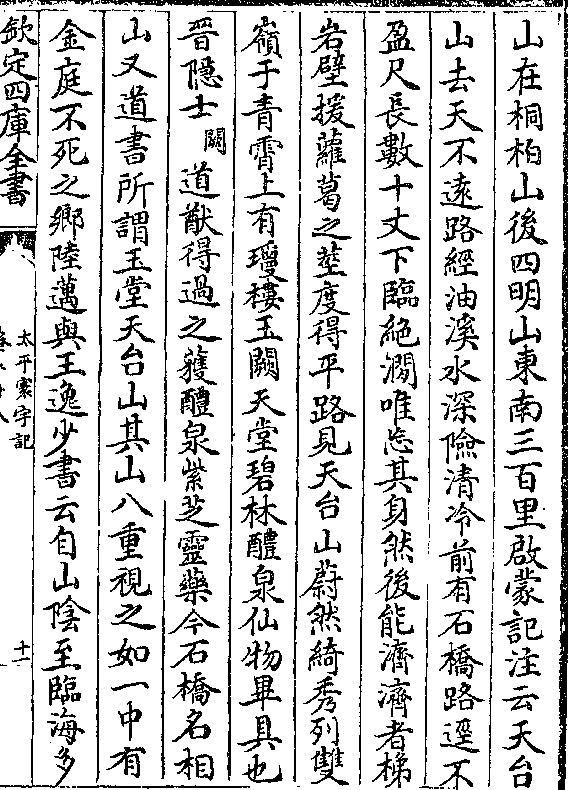 山在桐柏山後四明山東南三百里啟蒙記注云天台
山去天不遠路經油溪水深險清冷前有石橋路逕不
盈尺長數十丈下臨絶澗唯忘其身然後能濟濟者梯
岩壁援蘿葛之莖度得平路見天台山蔚然綺秀列雙
嶺于青霄上有瓊樓玉闕天堂碧林醴泉仙物畢具也
晉隠士闕道猷得過之獲醴泉紫芝靈藥今石橋名相
山又道書所謂玉堂天台山其山八重視之如一中有
金庭不死之鄉陸邁與王逸少書云自山陰至臨海多
欽定四庫全書
太平寰宇記
十一